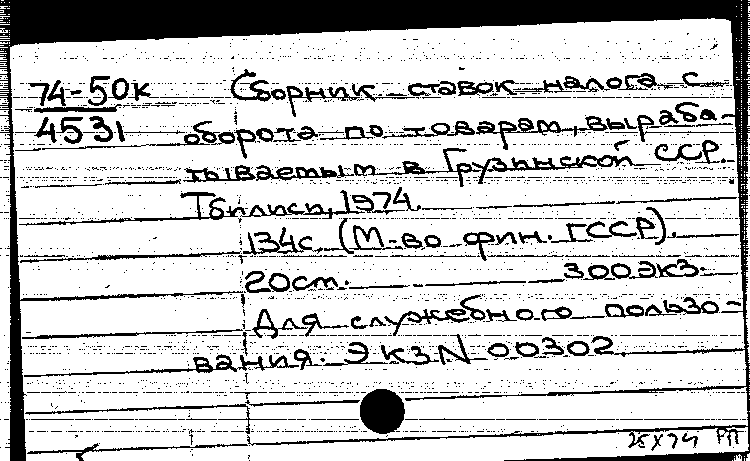 74-50к Сборник ставок налога с
4531 оборота по товарам, выраба-
тываемым в Грузинской ССР.
Тбилиси, 1974.
134с. (М-во фин. ГССР).
20см. 300экз.
Для служебного пользо-
вания. Экз N 00302.
25 X 74 РП